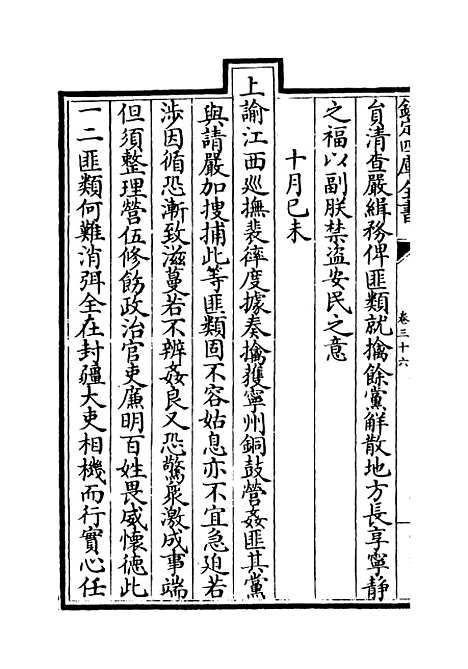 欽定四庫全書
卷三十六
負清查嚴緝務俾匪類就擒餘黨解散地方長享寧靜
之福以副朕禁盜安民之意
十月己未
上諭江西巡撫裴𢂷度據奏擒獲寧州銅鼓營姦匪其黨
與請嚴加搜捕此等匪類固不容姑息亦不宜急迫若
涉因循恐漸致滋蔓若不辨姦良又恐驚衆激成事端
但須整理營伍修飭政治官吏廉明百姓畏威懷德此
一二匪類何難消弭全在封疆大吏相機而行實心任